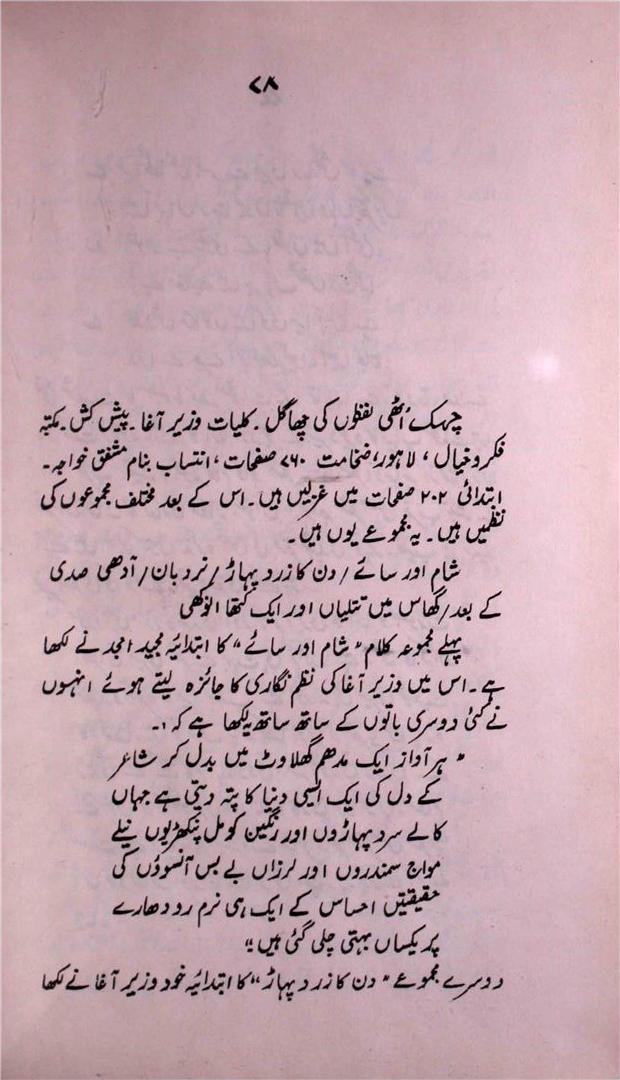 ۷۸
چہک اُٹھی لفظوں کی چھاگل ۔ کلیات وزیر آغا ۔ پیش کش ۔ مکتبہ
فکر و خیال ، لاہور ، ضخامت ۷۶۰ صفحات ، انتساب بنام مشفق خواجہ ۔
ابتدائی ۲۰۲ صفحات میں غزلیں ہیں ۔ اس کے بعد مختلف مجموعوں کی
نظمیں ہیں ۔ یہ مجموعے یوں ہیں ۔
شام اور سائے / دن کا زرد پہاڑ / نردبان / آدھی صدی
کے بعد / گھاس میں تتلیاں اور ایک کتھا انوکھی
پہلے مجموعہ کلام " شام اور سائے " کا ابتدائیہ مجید امجد نے لکھا
ہے ۔ اس میں وزیر آغا کی نظم نگاری کا جائزہ لیتے ہوئے انہوں
نے کئی دوسری باتوں کے ساتھ ساتھ یہ لکھا ہے کہ :۔
" ہر آواز ایک مدھم گھلاوٹ میں بدل کر شاعر
کے دل کی ایک ایسی دنیا کا پتہ دیتی ہے جہاں
کالے سرد پہاڑوں اور رنگین کومل پنکھڑیوں نیلے
مواج سمندروں اور لرزاں بے بس آنسوؤں کی
حقیقتیں احساس کے ایک ہی نرم رو دھارے
پر یکساں بہتی چلی گئی ہیں "
دوسرے مجموعے " دن کا زرد پہاڑ " کا ابتدائیہ خود وزیر آغا نے لکھا